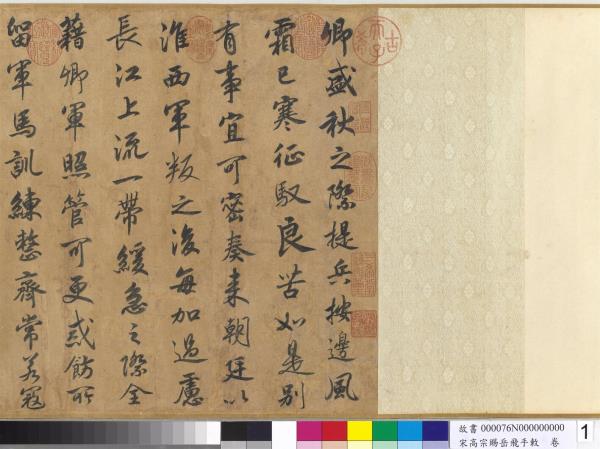 卿盛秋之際提兵按邊風
霜已寒征馭良苦如是別
有事宜可密奏来朝廷以
淮西軍叛之後每加過慮
長江上流一帶緩急之際全
藉卿軍照管可更戒飭所
留軍馬訓練整齊常若寇
古稀天子
故書 000076N000000000
宋高宗賜岳飛手敕 卷
1